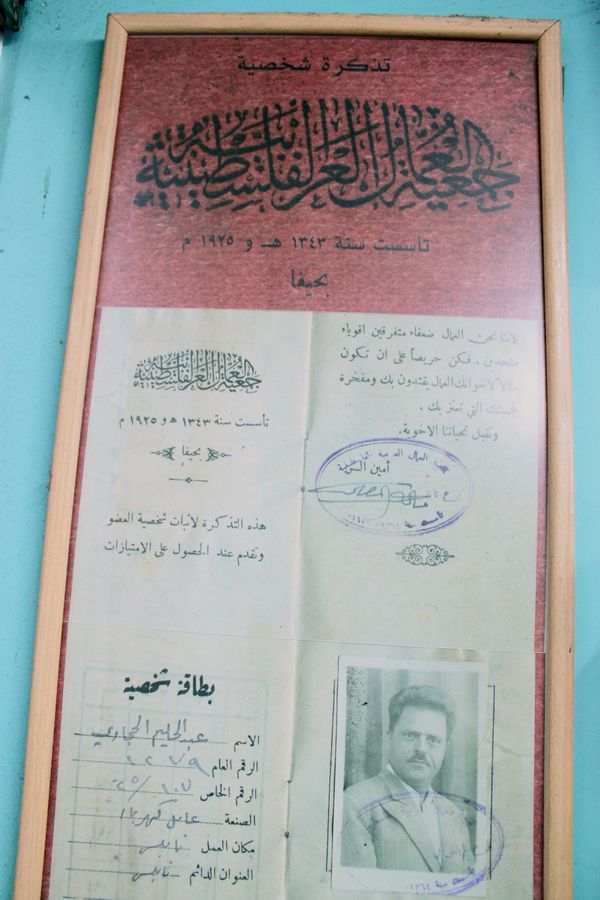 تذكرة شخصية
جمعية العمال العربية الفلسطينية
تأسست سنة ١٣٤٣ هـ و ١٩٢٥ م
بحيفا
لأننا نحن العمال ضعفاء متفرقين اقوياء
متحدين . فكن حريصا على ان تكون
مثالا لاخوانك العمال يقتدون بك ومفخرة
لجمعيتك التي تعتز بك .
وتقبل تحياتنا الاخوية.
أمين السر
جمعية العمال العربية الفلسطينية
جمعية العمال العربية الفلسطينية
تأسست سنة ١٣٤٣ ه و ١٩٢٥ م
بحيفا
هذه التذكرة لأثبات شخصية العضو
وتقدم عند الحصول على الامتيازات
بطاقة شخصية
الاسم عبد الحليم الحجاوي
الرقم العام ١٢٧٩
الرقم الخاص ٢٥/١٠٧
الصنعة عامل كهرباء
مكان العمل نابلس
العنوان الدائم نابلس